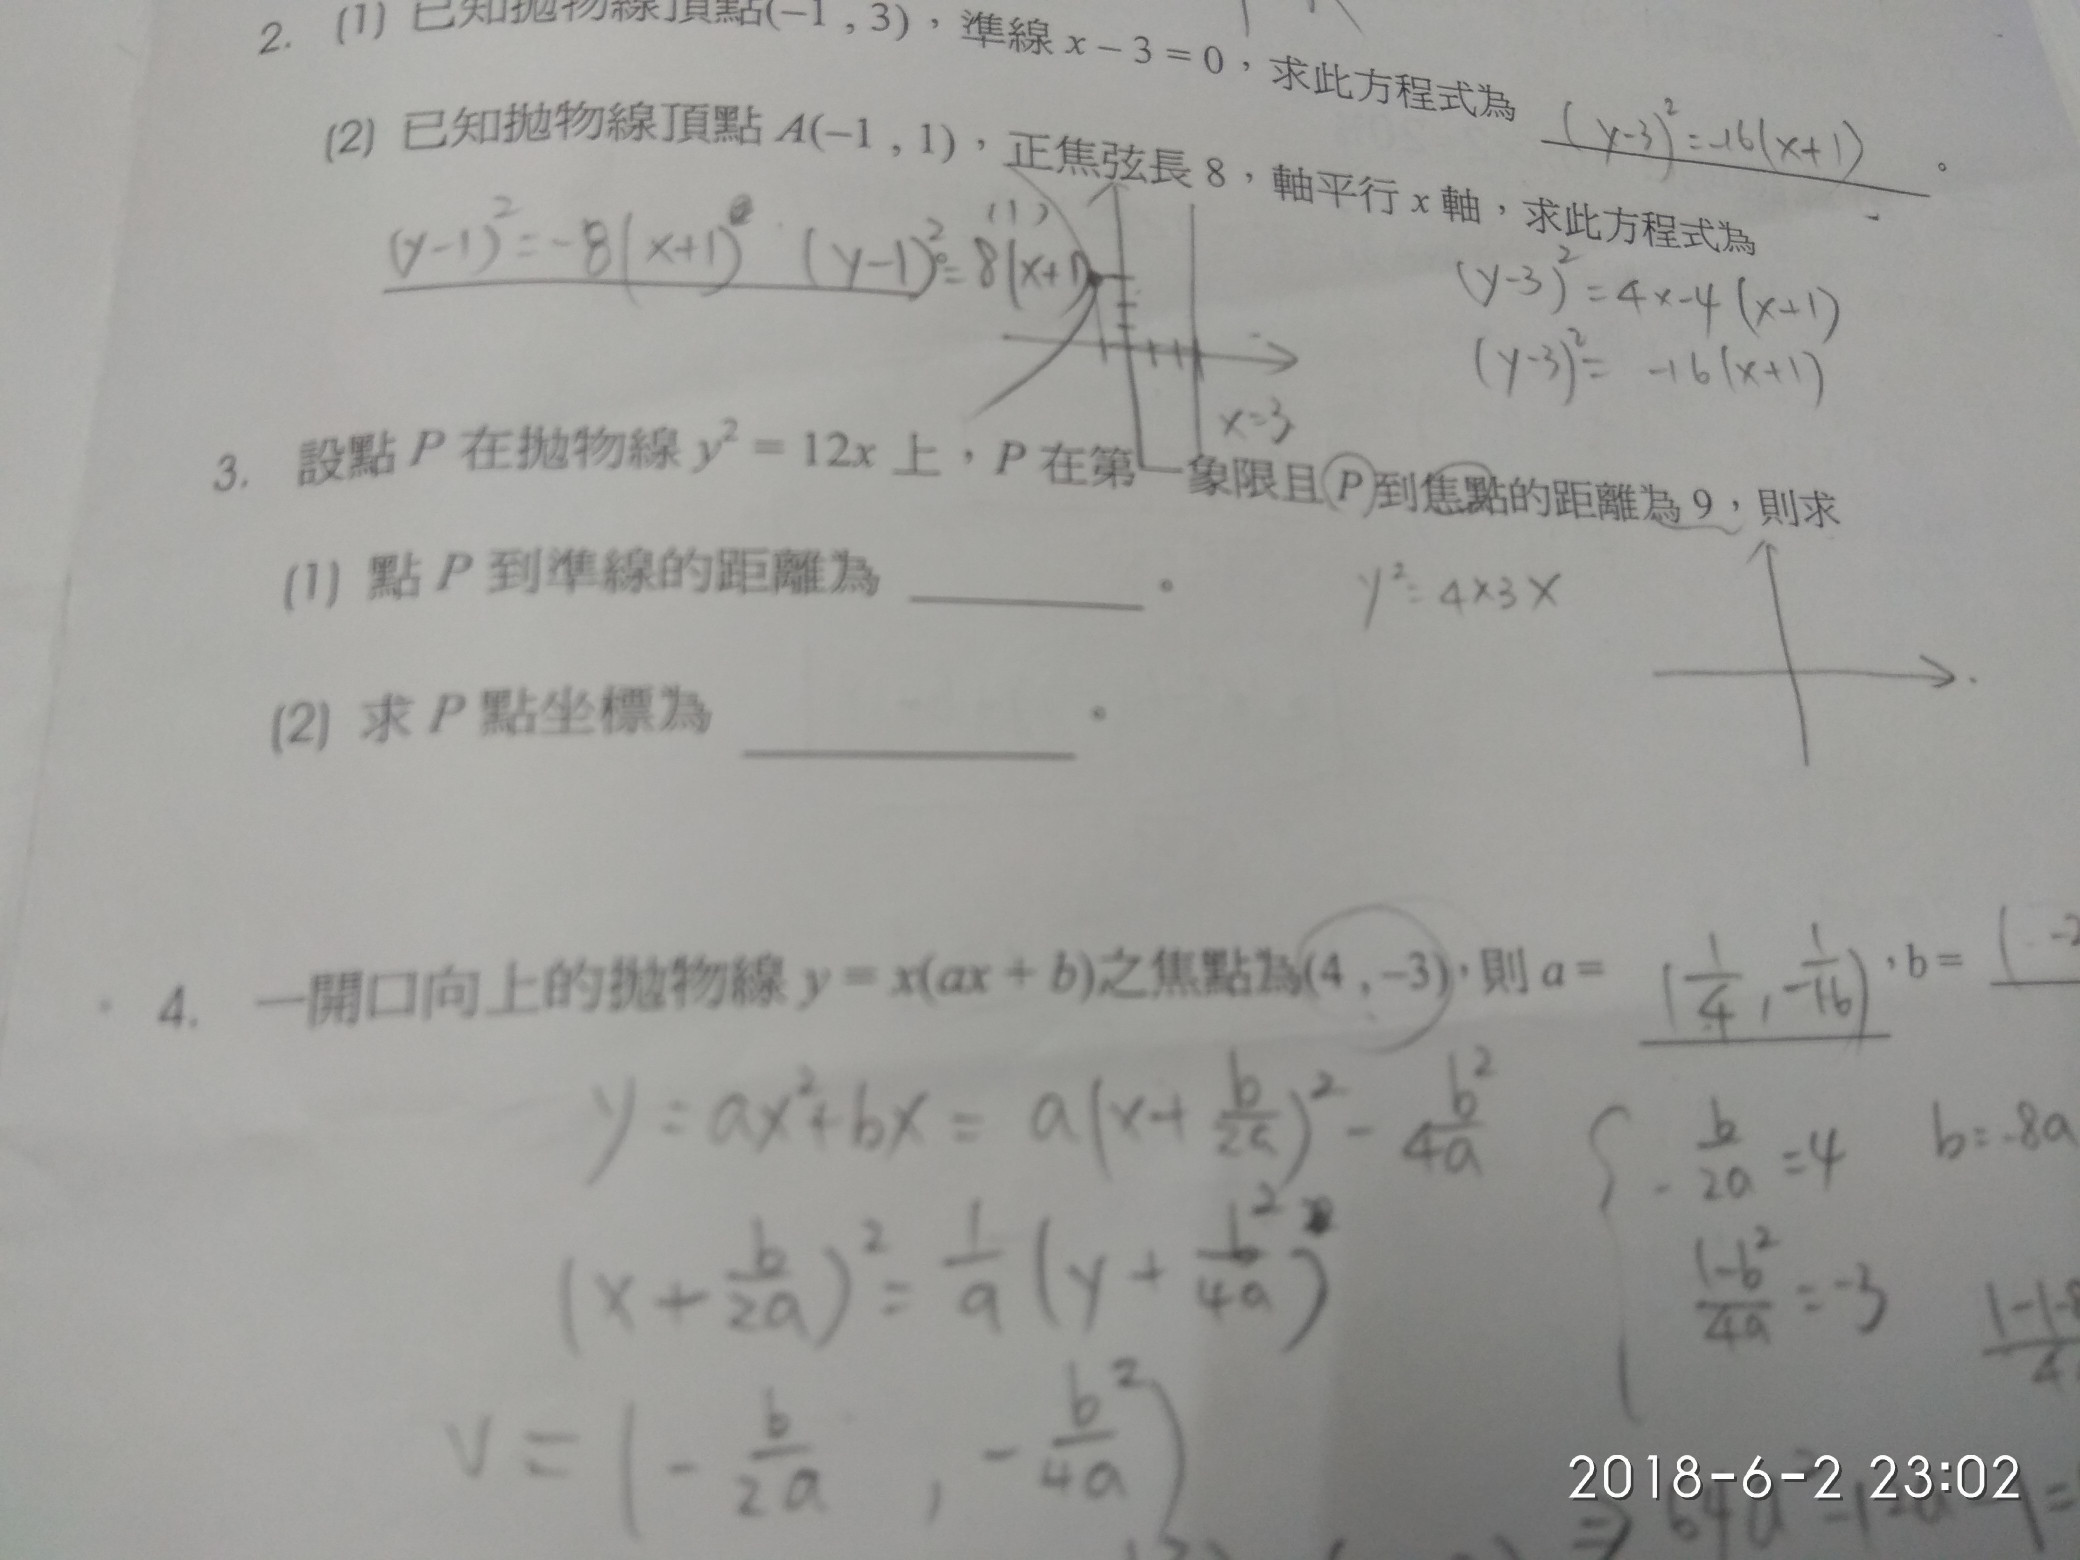 2. (1) 已知拋物線頂點(−1 , 3)，準線 x − 3 = 0，求此方程式為 (y-3)²=-16(x+1) 。
(2) 已知拋物線頂點 A(−1 , 1)，正焦弦長 8，軸平行 x 軸，求此方程式為
(y-1)²=-8(x+1) (y-1)²=8(x+1) 。
(1)
(y-3)²=4×-4(x+1)
(y-3)²= -16(x+1)
x=3
3. 設點 P 在拋物線 y² = 12x 上，P 在第一象限且 P 到焦點的距離為 9，則求
(1) 點 P 到準線的距離為 ______ 。
y²=4×3x
(2) 求 P 點坐標為 ______ 。
4. 一開口向上的拋物線 y = x(ax + b)之焦點為(4 , −3)，則 a = (1/4 , -1/16) ，b = ( -2
y=ax²+bx = a(x+b/2a)² - b²/4a
(x+b/2a)² = 1/a (y+b²/4a)
V = (-b/2a , -b²/4a)
-b/2a =4 b=-8a
1-b²/4a =-3
2018-6-2 23:02